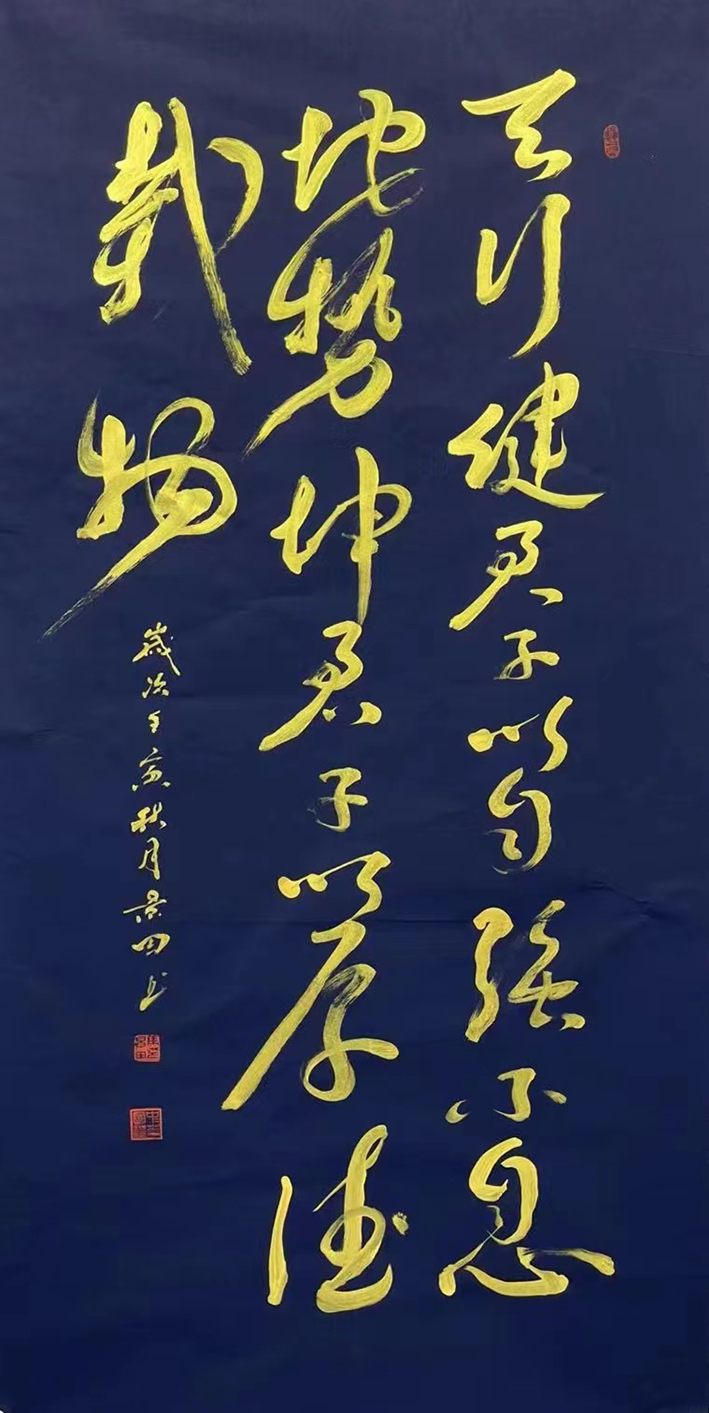 天行健君子以自强不息
地势坤君子以厚德
载物
岁次壬寅秋月景田书